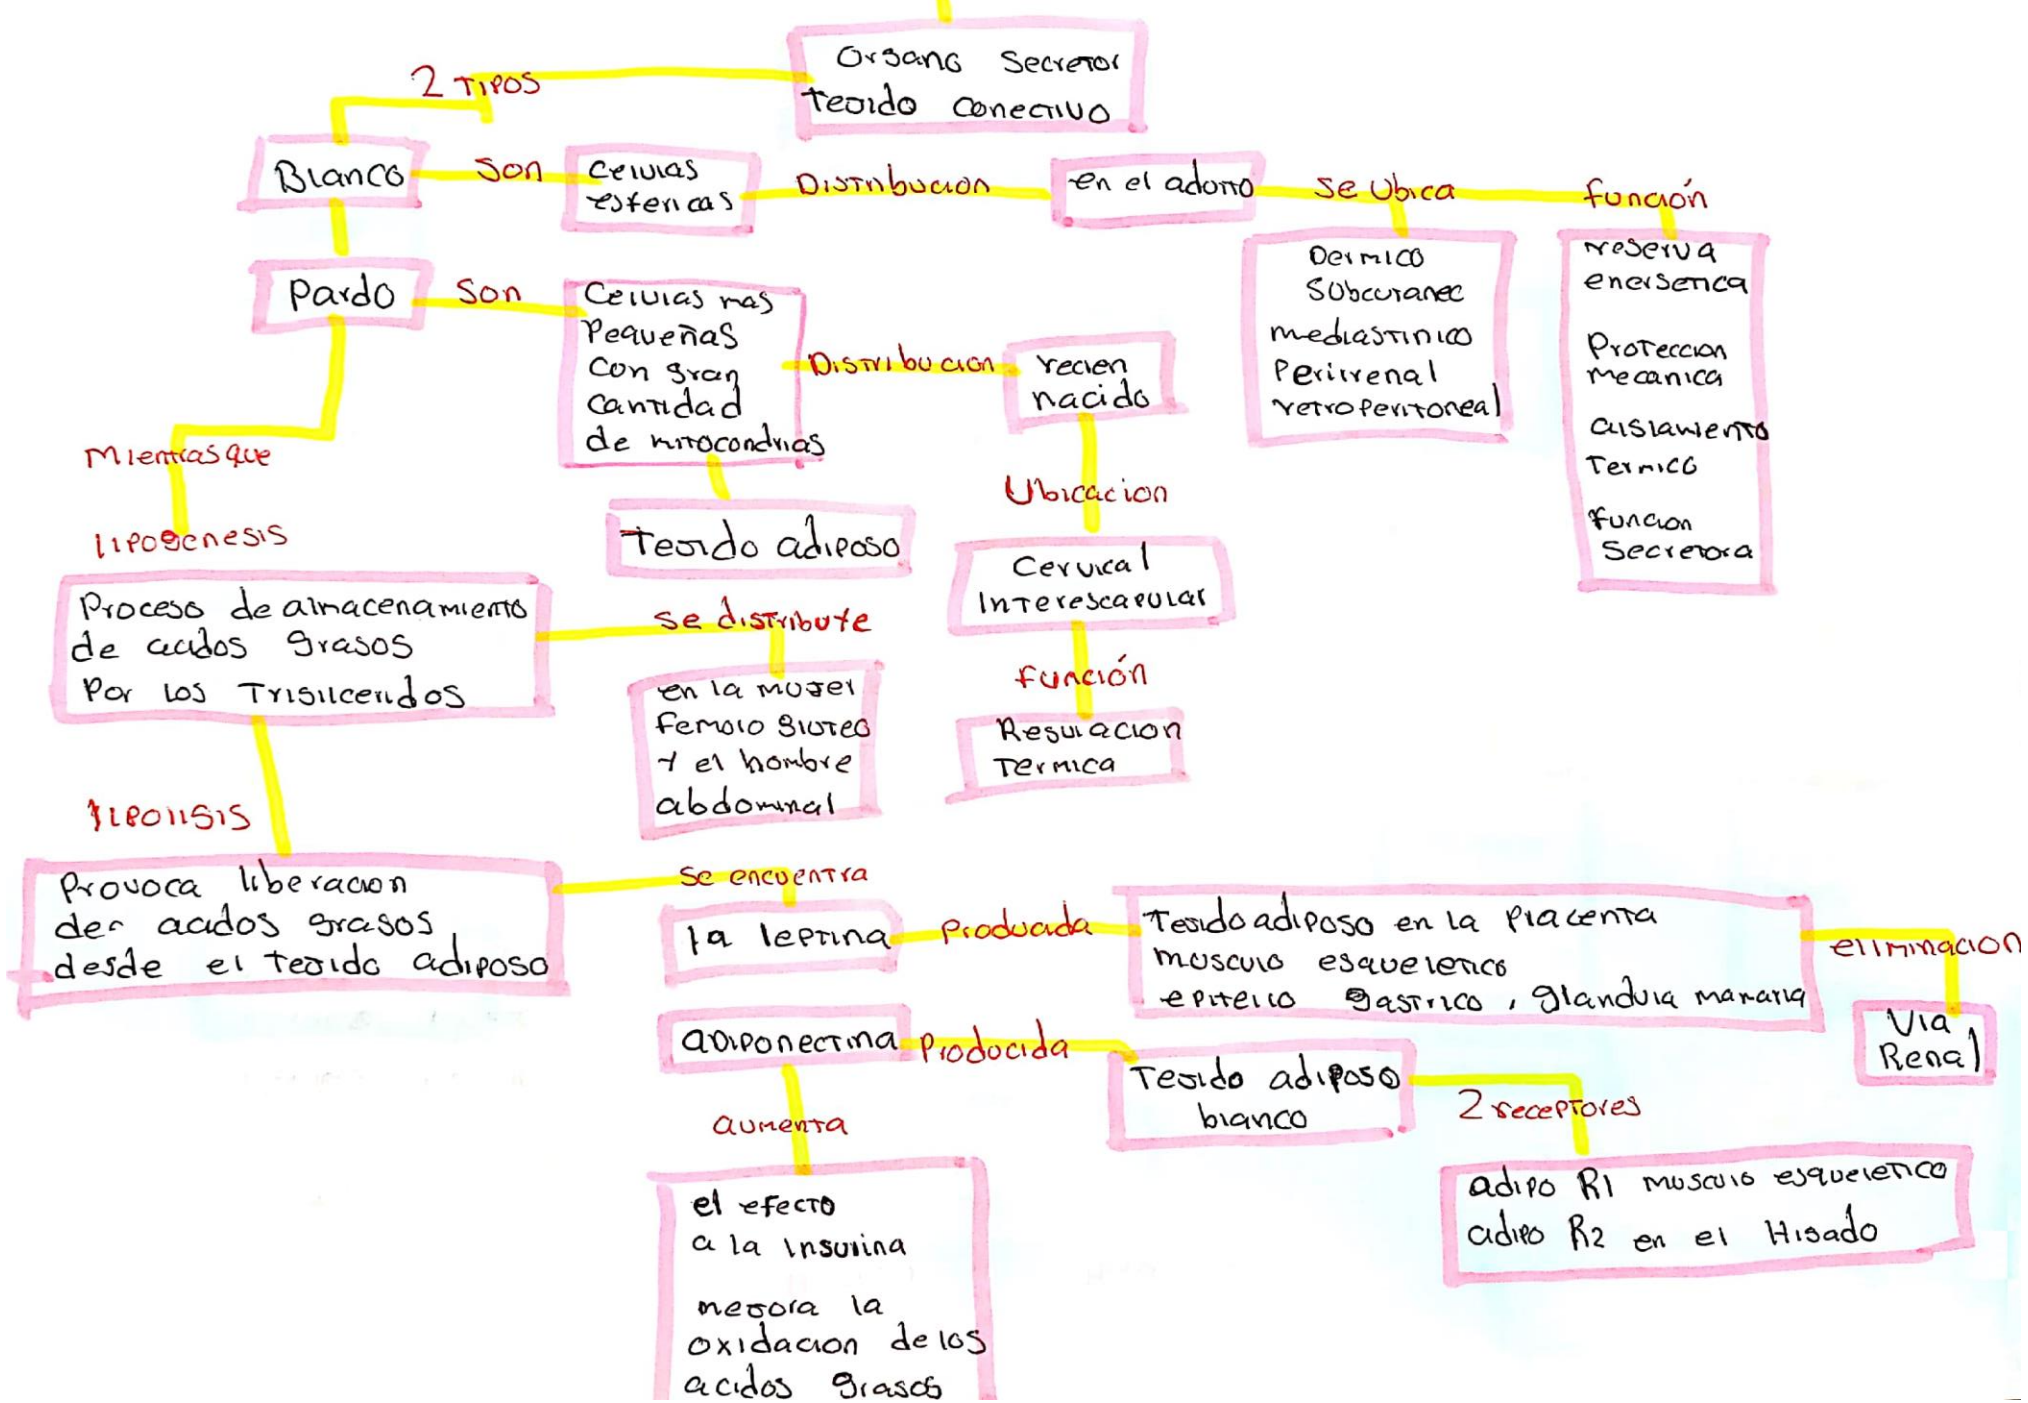 Organo Secretor
tejido conectivo
2 TIPOS
Blanco
Son
Celulas
esfericas
Distribucion
en el adulto
Se Ubica
función
Dermico
Subcutaneo
mediastinico
Perirrenal
retroperitoneal
reserva
energetica
Proteccion
mecanica
aislamiento
Termico
funcion
Secretora
Pardo
Son
Celulas mas
Pequeñas
Con gran
Cantidad
de mitocondrias
Distribucion
recien
nacido
Ubicacion
Cervical
Interescapular
función
Regulacion
Termica
Tejido adiposo
Mientras que
lipogenesis
Proceso de almacenamiento
de acidos grasos
Por los Trigliceridos
Se distribuye
en la mujer
femoro gluteo
y el hombre
abdominal
lipolisis
Provoca liberacion
de acidos grasos
desde el tejido adiposo
Se encuentra
la leptina
Producida
Tejido adiposo en la Placenta
musculo esqueletico
epitelio gastrico, glandula mamaria
eliminacion
Via
Renal
adiponectina
Producida
Tejido adiposo
blanco
2 receptores
adipo R1 musculo esqueletico
adipo R2 en el Higado
aumenta
el efecto
a la insulina
mejora la
oxidacion de los
acidos grasos